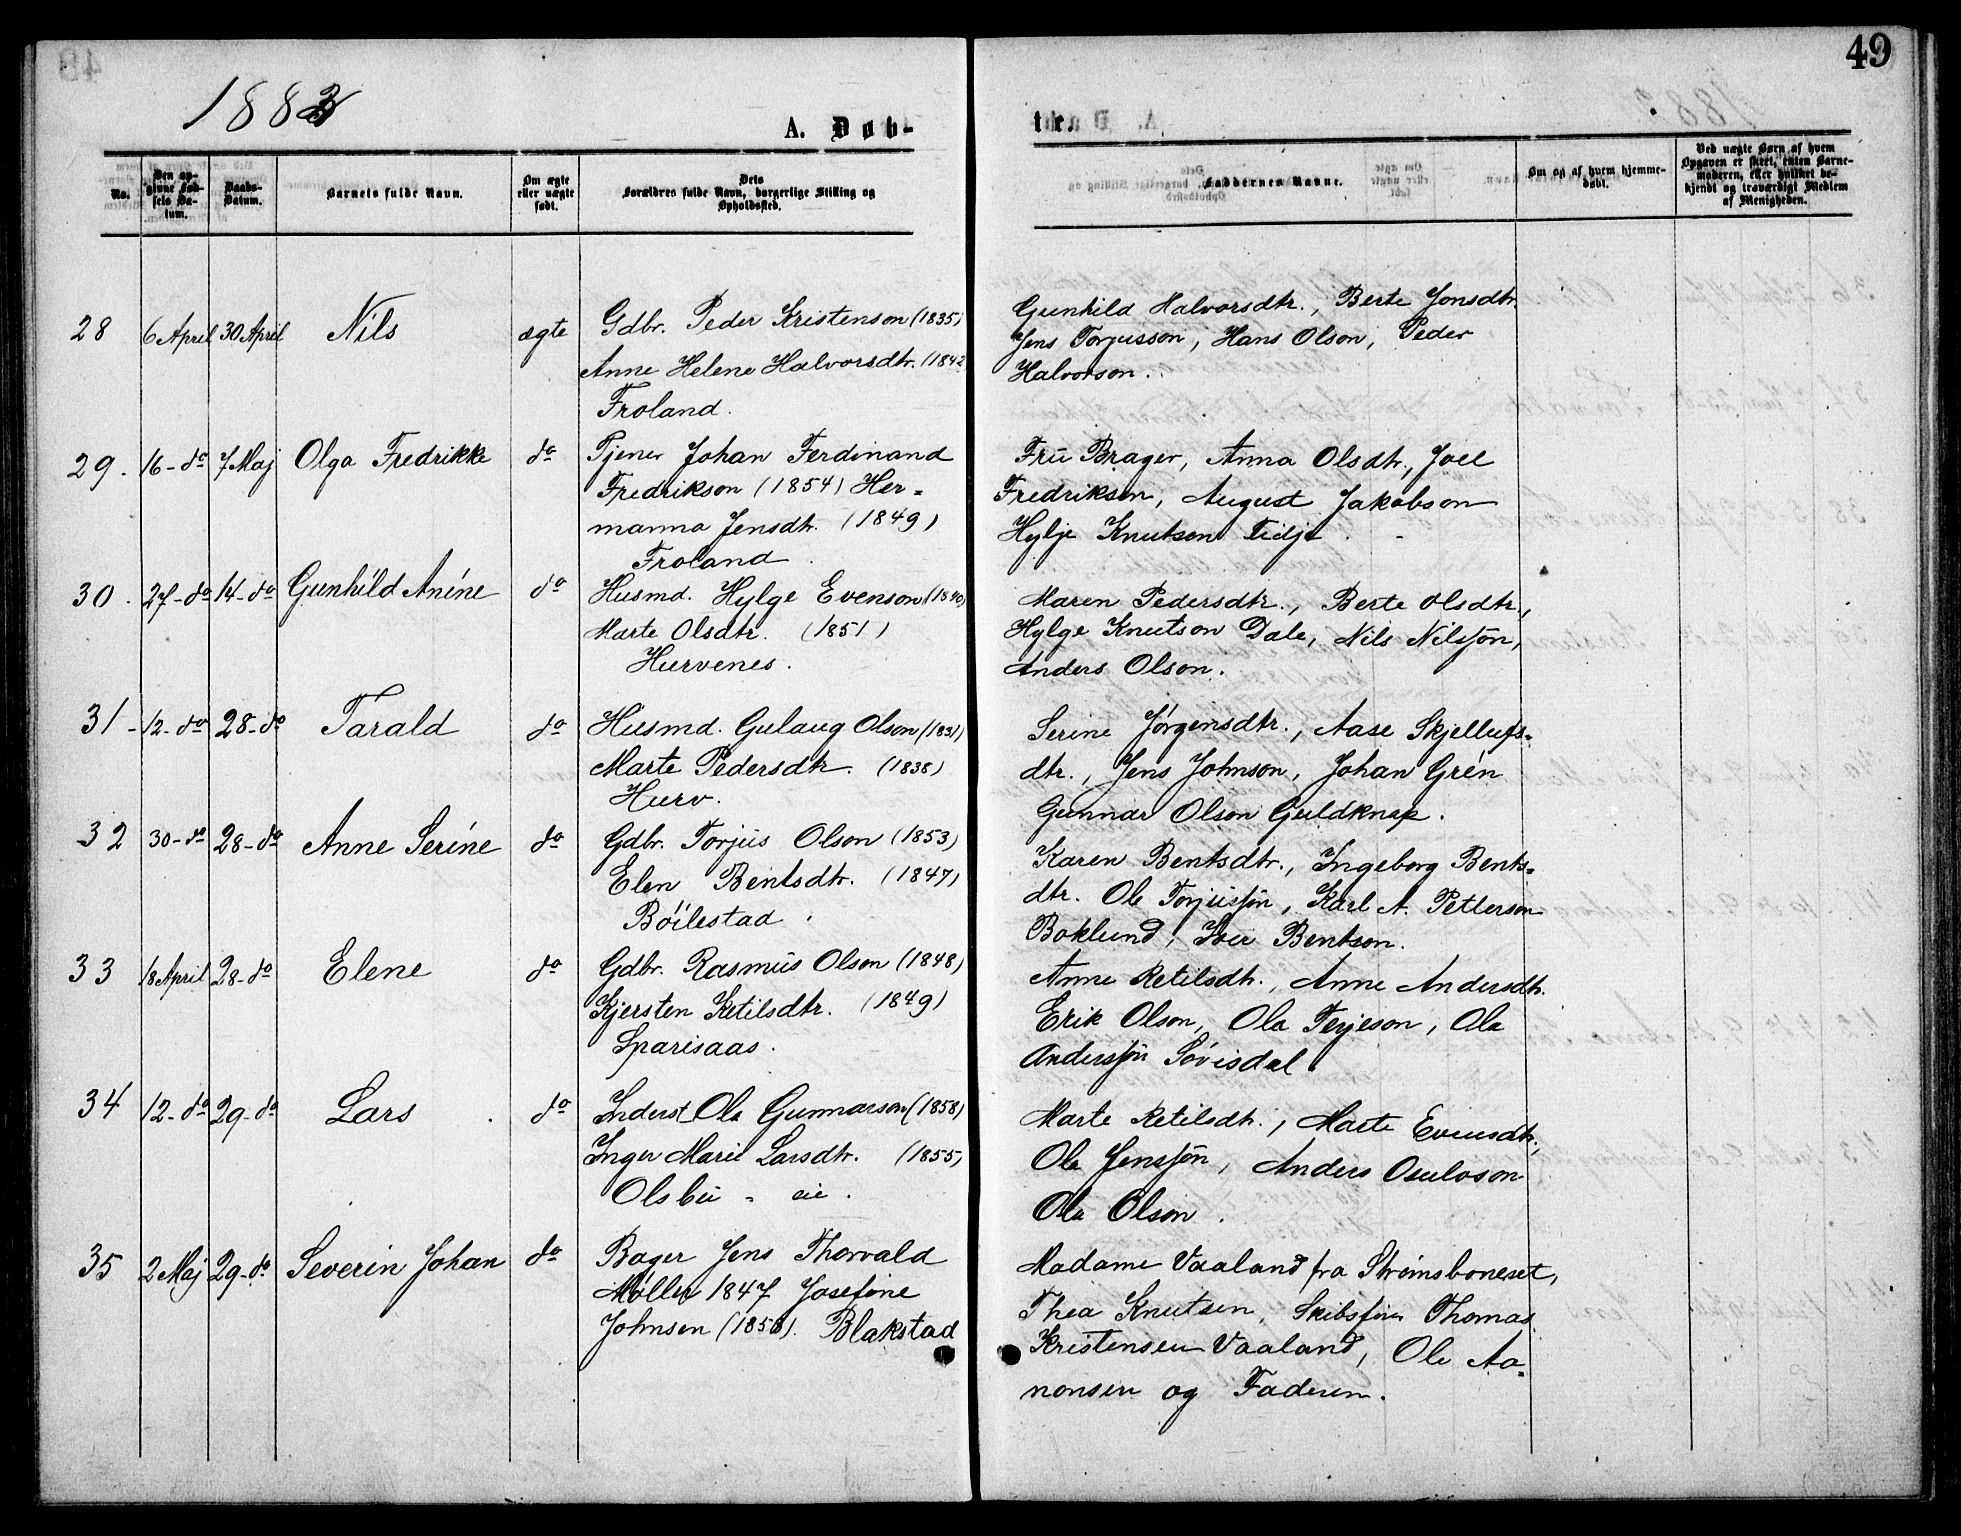 49
1882
A. Døb-
te.
No.
Den op-
givne Fød-
sels Da-
tum.
Daabs-
Datum.
Barnets fulde Navn.
Om ægte
eller uægte
født.
Dets
Forældres fulde Navn, borgerlige Stilling og
Opholdssted.
Faddernes Navne.
Om og af hvem hjemme-
døbt.
Ved uægte Børn af hvem
Opgaven er skeet, enten Barne-
moderen, eller hvilket be-
kjendt og troværdigt Medlem
af Menigheden.
28 6 April 30 April Nils ægte Gdbr. Peder Kristenson (1835)
Anne Helene Halvorsdtr. (1842
Froland.
Gunhild Halvorsdtr., Berte Jonsdtr.
Jens Torjusson, Hans Olson, Peder
Halvorson.
29. 16-do 7 Maj Olga Fredrikke do Tjener Johan Ferdinand
Fredrikson (1854) Her-
manna Jensdtr. (1849)
Froland.
Fru Brager, Anna Olsdtr., Joel
Fredriksen, August Jakobson
Hylje Knutson
30. 27-do 14-do Gunhild Anine do Husmd. Hylge Evenson (1840)
Marte Olsdtr. (1851)
Hurvenes.
Maren Pedersdtr., Berte Olsdtr.,
Hylge Knutson Dale, Nils Nilssøn,
Anders Olson.
31 - 12-do 28-do Tarald do Husmd. Gulaug Olson (1831)
Marte Pedersdtr. (1838)
Hurv.
Serine Jørgensdtr., Aase Skjellufs-
dtr., Jens Johnson, Johan Grén
Gunnar Olson Guldknap.
32 30-do 28-do Anne Serine do Gdbr. Torjus Olson (1853)
Elen Bentsdtr. (1847)
Böilestad.
Karen Bentsdtr., Ingeborg Bents-
dtr. Ole Torjussøn, Karl A. Petterson
Boklund, Iver Bentson.
33 18 April 28-do Elene do Gdbr. Rasmus Olson (1848)
Kjersten Ketilsdtr. (1849)
Sparisaas.
Anne Ketilsdtr., Anne Andersdtr.
Erik Olson, Ola Terjeson, Ola
Anderssøn Søvisdal
34 12-do 29-do Lars do Inderst Ola Gunnarson (1858)
Inger Marie Larsdtr. (1855)
Olsbu - eie.
Marte Ketilsdtr., Marte Evensdtr.,
Ole Jenssøn, Anders Osuloson
Ola Olson.
35 2 Maj 29-do Severin Johan do Bager Jens Thorvald
Møller 1847 Josefine
Johnsen Blakstad
Madame Vaaland fra Strømsboneset,
Thea Knutsen, Skibsfører Thomas
Kristensen Vaaland, Ole Aa-
nonsen og Faderen.